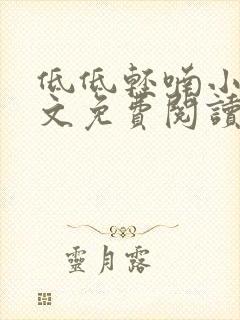 低低轻喃小
文免費閱讀
靈月露